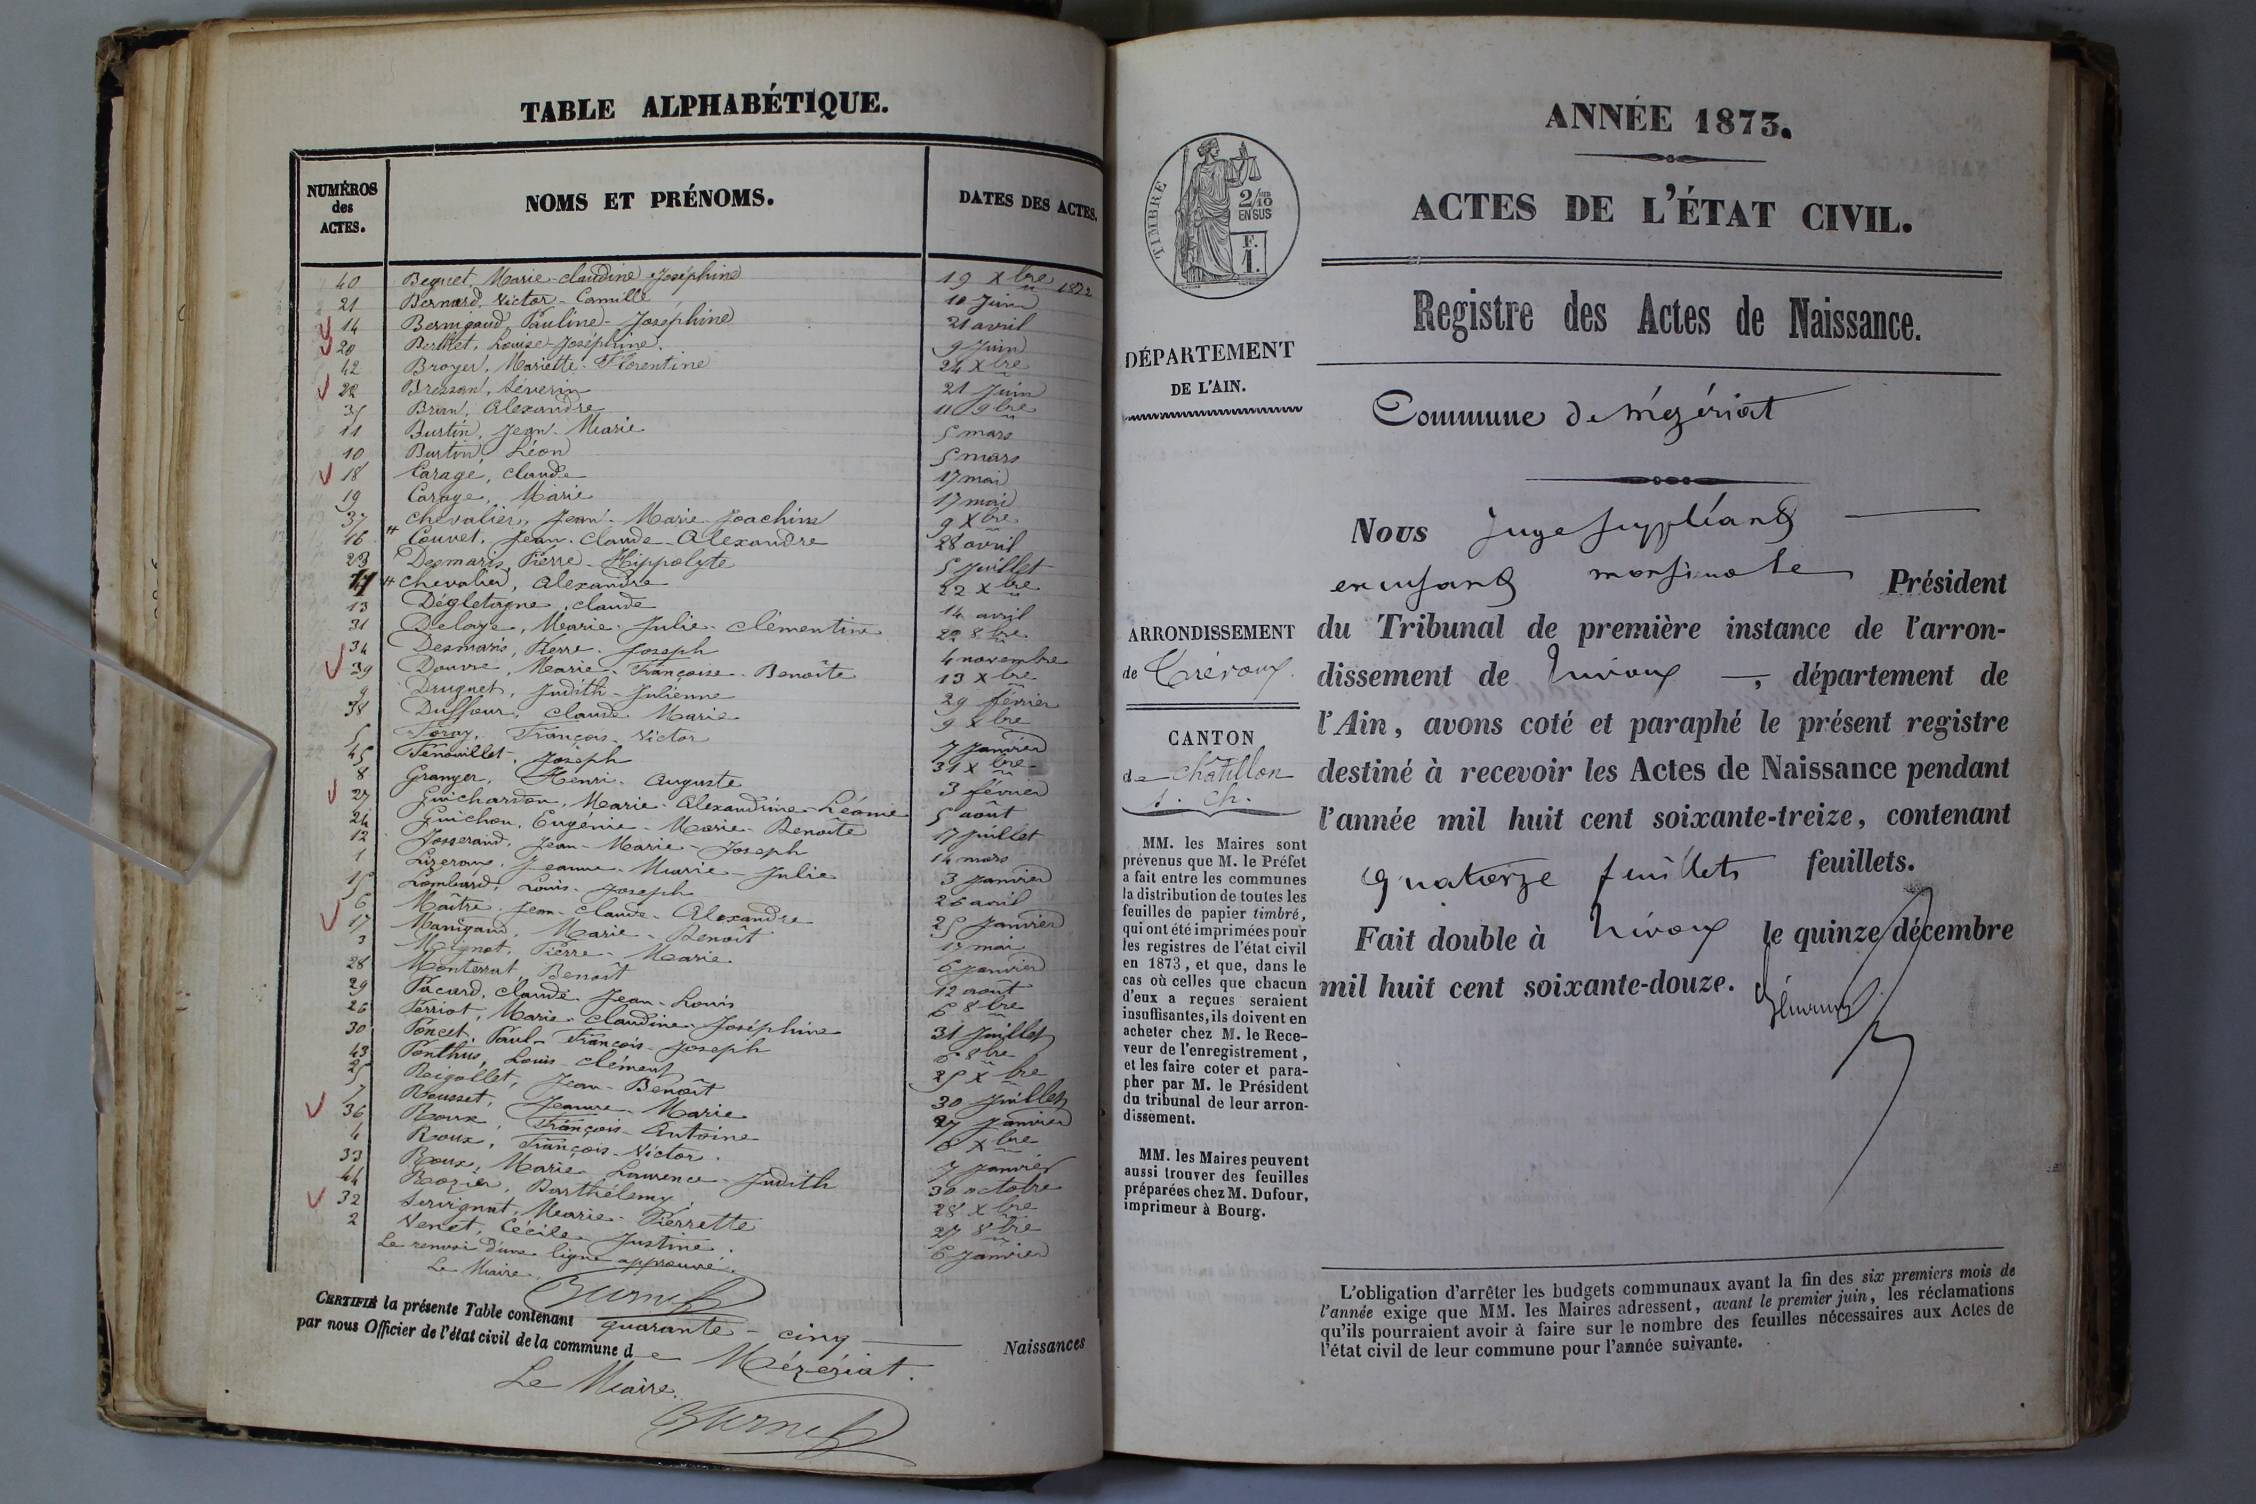 TABLE ALPHABÉTIQUE.
NUMÉROS des ACTES. NOMS ET PRÉNOMS. DATES DES ACTES.
40 Beguet, Marie-Claudine Joséphine 19 Xbre 1872
21 Bernard, Victor-Camille 10 Juin
14 Bernigaud, Pauline-Joséphine 21 avril
20 Berthet, Louise-Joséphine. 9 Juin
42 Broyer, Mariette-Florentine 24 Xbre
22 Bressan, Séverin 21 Juin
35 Brun, Alexandre 11 9bre
11 Burtin, Jean-Marie 5 mars
10 Burtin, Léon 5 mars
18 Carage, Claude 17 mai
19 Carage, Marie 17 mai
37 Chevalier, Jean-Marie-Joachim 9 Xbre
16 Couvet, Jean-Claude-Alexandre 28 avril
23 Desmaris, Pierre-Hippolyte 5 Juillet
Chevalier, Alexandre 22 Xbre
13 Dégletagne, Claude 14 avril
31 Delaye, Marie-Julie-Clémentine 20 8bre
34 Desmaris, Pierre-Joseph 4 novembre
39 Douvre, Marie-Françoise-Benoîte 13 Xbre
9 Druguet, Judith-Julienne 29 février
38 Duffour, Claude Marie 9 Xbre
5 Feray, François-Victor 7 Janvier
45 Fenouillet, Joseph 31 Xbre
8 Granger, Henri-Auguste 3 février
27 Guichardon, Marie-Alexandrine-Léonie 5 août
24 Guichon, Eugénie-Marie-Benoîte 17 Juillet
12 Josserand, Jean-Marie-Joseph 14 mars
1 Lizerand, Jeanne-Marie-Julie 3 Janvier
15 Lombard, Louis-Joseph 26 avril
6 Maître, Jean-Claude-Alexandre 25 Janvier
17 Manigand, Marie-Benoît 17 mai
3 Meignat, Pierre-Marie 6 janvier
28 Monterrat, Benoît 12 août
29 Pacard, Claude Jean-Louis 6 8bre
26 Perriot, Marie-Claudine-Joséphine 31 Juillet
30 Poncet, Paul-François-Joseph 6 8bre
43 Ponthus, Louis-Clément 25 Xbre
25 Reigollet, Jean-Benoît 30 Juillet
7 Rousset, Jeanne-Marie 27 Janvier
36 Roux, François-Antoine 6 Xbre
4 Roux, François-Victor. 7 janvier
33 Roux, Marie Laurence-Judith 30 octobre
44 Rozier, Barthélemy. 28 Xbre
32 Servignat, Marie-Pierrette 27 8bre
2 Venet, Cécile-Justine. 6 Janvier
Le renvoi d'une ligne approuvé.
Le Maire.
CERTIFIÉ la présente Table contenant quarante-cinq Naissances
par nous Officier de l'état civil de la commune de Mézériat.
Le Maire.
ANNÉE 1873.
ACTES DE L'ÉTAT CIVIL.
TIMBRE
2/10
EN SUS
F.
1.
Registre des Actes de Naissance.
DÉPARTEMENT
DE L'AIN.
Commune de Mézériat
Nous Juge suppléant
Président
du Tribunal de première instance de l'arron-
dissement de Trévoux, département de
l'Ain, avons coté et paraphé le présent registre
destiné à recevoir les Actes de Naissance pendant
l'année mil huit cent soixante-treize, contenant
quatorze feuillets feuillets.
Fait double à Trévoux le quinze décembre
mil huit cent soixante-douze.
ARRONDISSEMENT
de Trévoux.
CANTON
de Châtillon
s. Ch.
MM. les Maires sont
prévenus que M. le Préfet
a fait entre les communes
la distribution de toutes les
feuilles de papier timbré,
qui ont été imprimées pour
les registres de l'état civil
en 1873, et que, dans le
cas où celles que chacun
d'eux a reçues seraient
insuffisantes, ils doivent en
acheter chez M. le Rece-
veur de l'enregistrement,
et les faire coter et para-
pher par M. le Président
du tribunal de leur arron-
dissement.
MM. les Maires peuvent
aussi trouver des feuilles
préparées chez M. Dufour,
imprimeur à Bourg.
L'obligation d'arrêter les budgets communaux avant la fin des six premiers mois de
l'année exige que MM. les Maires adressent, avant le premier juin, les réclamations
qu'ils pourraient avoir à faire sur le nombre des feuilles nécessaires aux Actes de
l'état civil de leur commune pour l'année suivante.